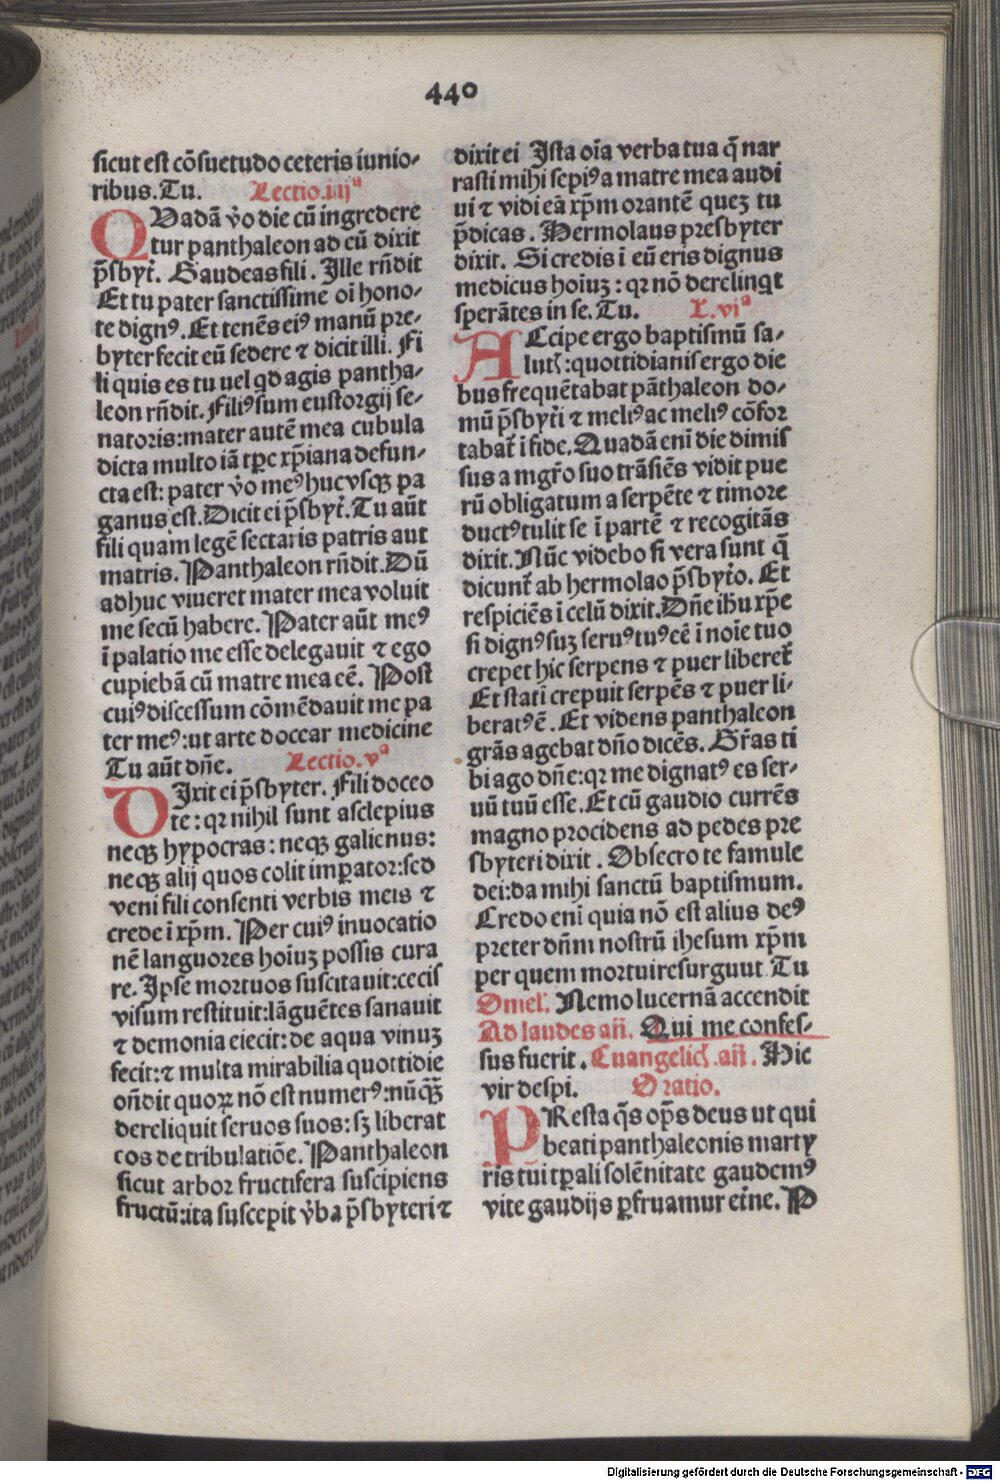 440
sicut est cõsuetudo ceteris iunio-
ribus. Tu. Lectio. iiijª
QUadã v̓o die cũ ingredere
tur panthaleon ad eũ dixit
p̃sbyt̃. Gaudeas fili. Ille rñdit
Et tu pater sanctissime oĩ hono-
re dignꝰ. Et tenẽs eiꝰ manũ pre-
byter fecit eũ sedere ⁊ dicit illi. Fi
li quis es tu uel qd agis pantha-
leon rñdit. Filiꝰ sum eustorgij se-
natoris: mater autẽ mea cubula
dicta multo iã tp̃e xp̃iana defun-
cta est: pater v̓o meꝰ hucvsqꝫ pa
ganus est. Dicit ei p̃sbyt̃. Tu aũt
fili quam legẽ sectaris patris aut
matris. Panthaleon rñdit. Dũ
adhuc viueret mater mea voluit
me secũ habere. Pater aũt meꝰ
ĩ palatio me esse delegauit ⁊ ego
cupiebã cũ matre mea eẽ. Post
cuiꝰ discessum cõmẽdauit me pa
ter meꝰ: ut arte docear medicine
Tu aũt dñe. Lectio. vª
DIxit ei p̃sbyter. Fili doceo
te: qꝛ nihil sunt asclepius
neqꝫ hypocras: neqꝫ galienus:
neqꝫ alij quos colit imꝑator: sed
veni fili consenti verbis meis ⁊
crede ĩ xp̃m. Per cuiꝰ inuocatio
nẽ languores hoiuꝫ possis cura
re. Ipse mortuos suscitauit: cecis
visum restituit: lãguẽtes sanauit
⁊ demonia eiecit: de aqua vinuꝫ
fecit: ⁊ multa mirabilia quottidie
oñdit quoꝝ nõ est numerꝰ: nũqꝫ̃
dereliquit seruos suos: sꝫ liberat
eos de tribulatiõe. Panthaleon
sicut arbor fructifera suscipiens
fructũ: ita suscepit v̓ba p̃sbyteri ⁊
dixit ei Ista oĩa verba tua q̃ nar
rasti mihi sepiꝰ a matre mea audi
ui ⁊ vidi eã xp̃m orantẽ queꝫ tu
p̃dicas. Hermolaus presbyter
dixit. Si credis ĩ eũ eris dignus
medicus hoiuꝫ: qꝛ nõ derelinqt
sperãtes in se. Tu. L. viª
ACcipe ergo baptismũ sa-
lutꝭ: quottidianis ergo die
bus frequẽtabat pãthaleon do-
mũ p̃sbyt̃i ⁊ meliꝰ ac meliꝰ cõfor
tabat̃ ĩ fide. Quadã enĩ die dimis
sus a mgr̃o suo trãsiẽs vidit pue
rũ obligatum a serpẽte ⁊ timore
ductꝰ tulit se ĩ partẽ ⁊ recogitãs
dixit. Nũc videbo si vera sunt q̃
dicunt̃ ab hermolao p̃sbyt̃o. Et
respiciẽs ĩ celũ dixit. Dñe ihũ xp̃e
si dignꝰ suꝫ seruꝰ tuꝰ eẽ ĩ noĩe tuo
crepet hic serpens ⁊ puer liberet̃
Et statĩ crepuit serpẽs ⁊ puer li-
beratꝰ ẽ. Et videns panthaleon
grãs agebat dño dicẽs. Gr̃as ti
bi ago dñe: qꝛ me dignatꝰ es ser-
uũ tuũ esse. Et cũ gaudio currẽs
magno procidens ad pedes pre
sbyteri dixit. Obsecro te famule
dei: da mihi sanctũ baptismum.
Credo enĩ quia nõ est alius deꝰ
preter dñm nostrũ ihesum xp̃m
per quem mortui resurguut. Tu
Omel̃. Nemo lucernã accendit
Ad laudes añ. Qui me confes-
sus fuerit. Euangelicꝭ. añ. Hic
vir despi. Oratio.
PResta q̃s op̃s deus ut qui
beati panthaleonis marty
ris tui tꝑali solẽnitate gaudemꝰ
vite gaudijs ꝑfruamur et̃ne. P
Digitalisierung gefördert durch die Deutsche Forschungsgemeinschaft - DFG